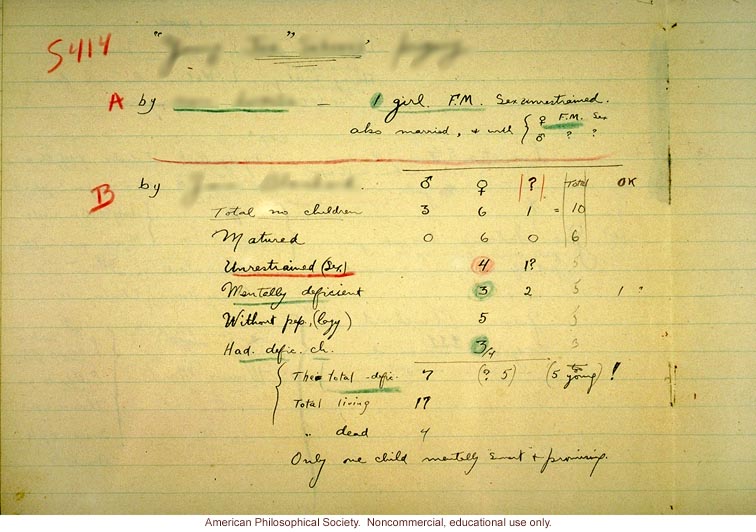 S414 " "
A by — 1 girl. F.M. Sex unrestrained.
also married, + with { ♀ F.M. Sex
♂ ? ?
B by ♂ ♀ |?| Total OK
Total no children 3 6 1 = 10
Matured 0 6 0 6
Unrestrained (Sex) 4 1? 5
Mentally deficient 3 2 5 1 ?
Without pep, (logy) 5 5
Had. defic. ch. 3/4 3
The total defic. 7 (? 5) (5 too young) !
Total living 17
" dead 4
Only one child mentally smart + promising.
American Philosophical Society. Noncommercial, educational use only.